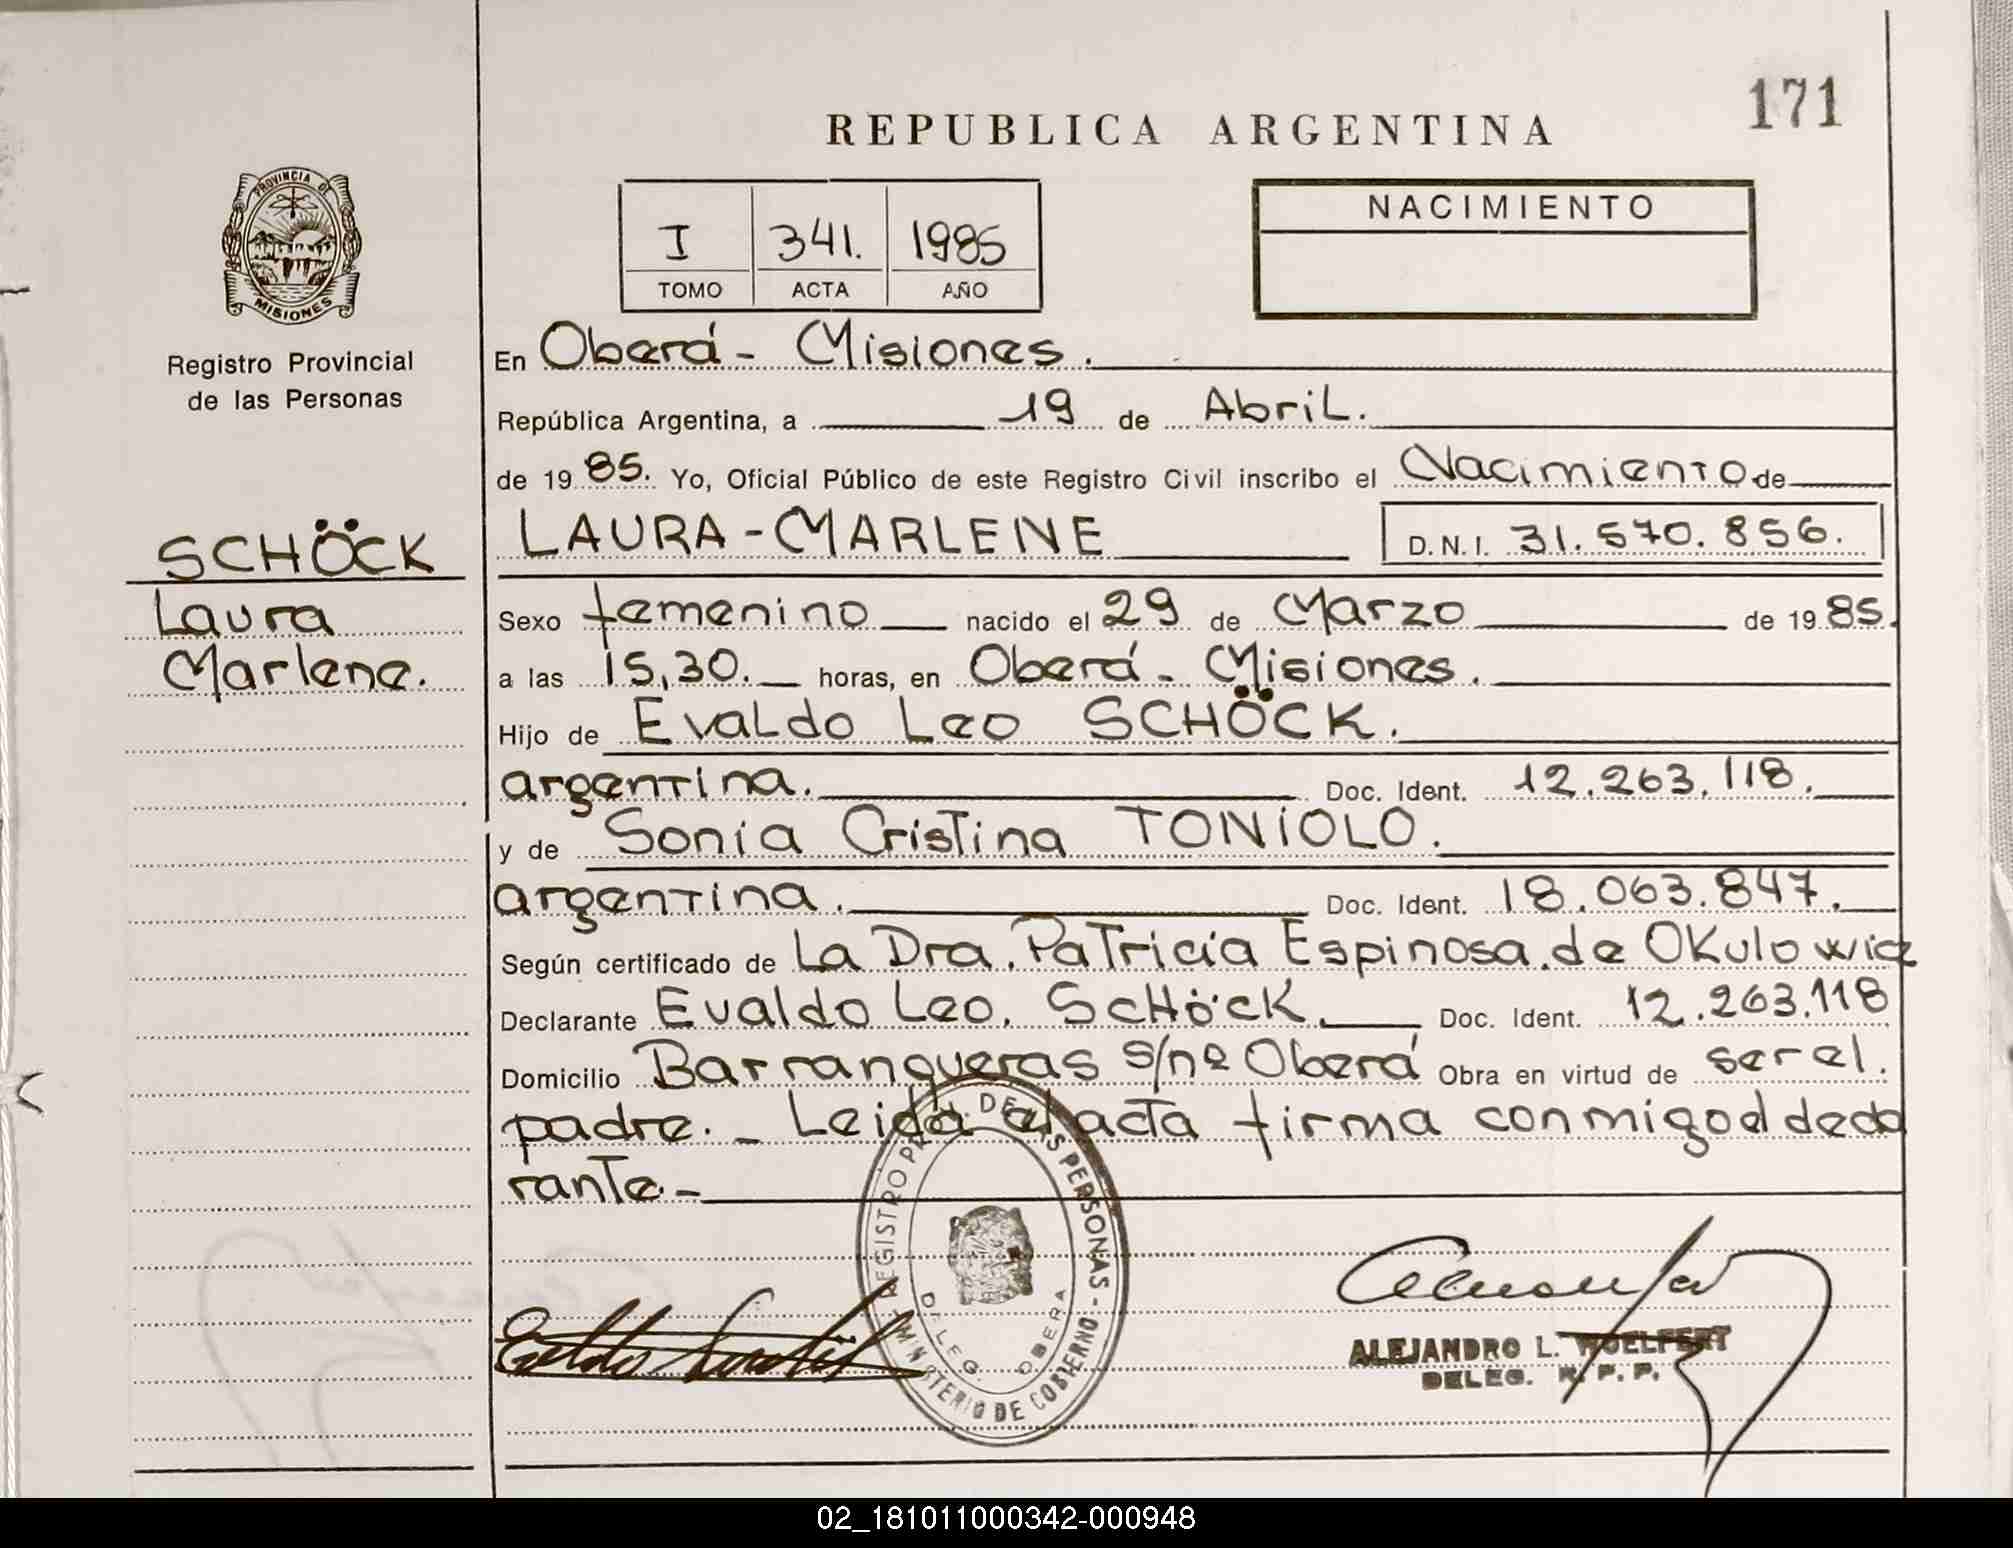 171
REPUBLICA ARGENTINA
PROVINCIA DE
MISIONES
Registro Provincial
de las Personas
I 341. 1985
TOMO ACTA AÑO
NACIMIENTO
SCHÖCK
Laura
Marlene.
En Oberá - Misiones.
República Argentina, a 19 de Abril.
de 19 85. Yo, Oficial Público de este Registro Civil inscribo el Nacimiento de
LAURA - MARLENE D.N.I. 31.570.856.
Sexo femenino nacido el 29 de Marzo de 19 85.
a las 15,30. horas, en Oberá - Misiones.
Hijo de Evaldo Leo SCHÖCK.
argentina. Doc. Ident. 12.263.118.
y de Sonia Cristina TONIOLO.
argentina. Doc. Ident. 18.063.847.
Según certificado de La Dra. Patricia Espinosa de Okulowicz
Declarante Evaldo Leo. SCHöCK. Doc. Ident. 12.263.118
Domicilio Barranqueras s/nº Oberá Obra en virtud de ser el.
padre. - Leida el acta firma conmigo el decla
rante. -
REGISTRO PR DE LAS PERSONAS - MINISTERIO DE GOBIERNO -
DELEG. OBERA
ALEJANDRO L. WOELFERT
DELEG. R. P. P.
02_181011000342-000948